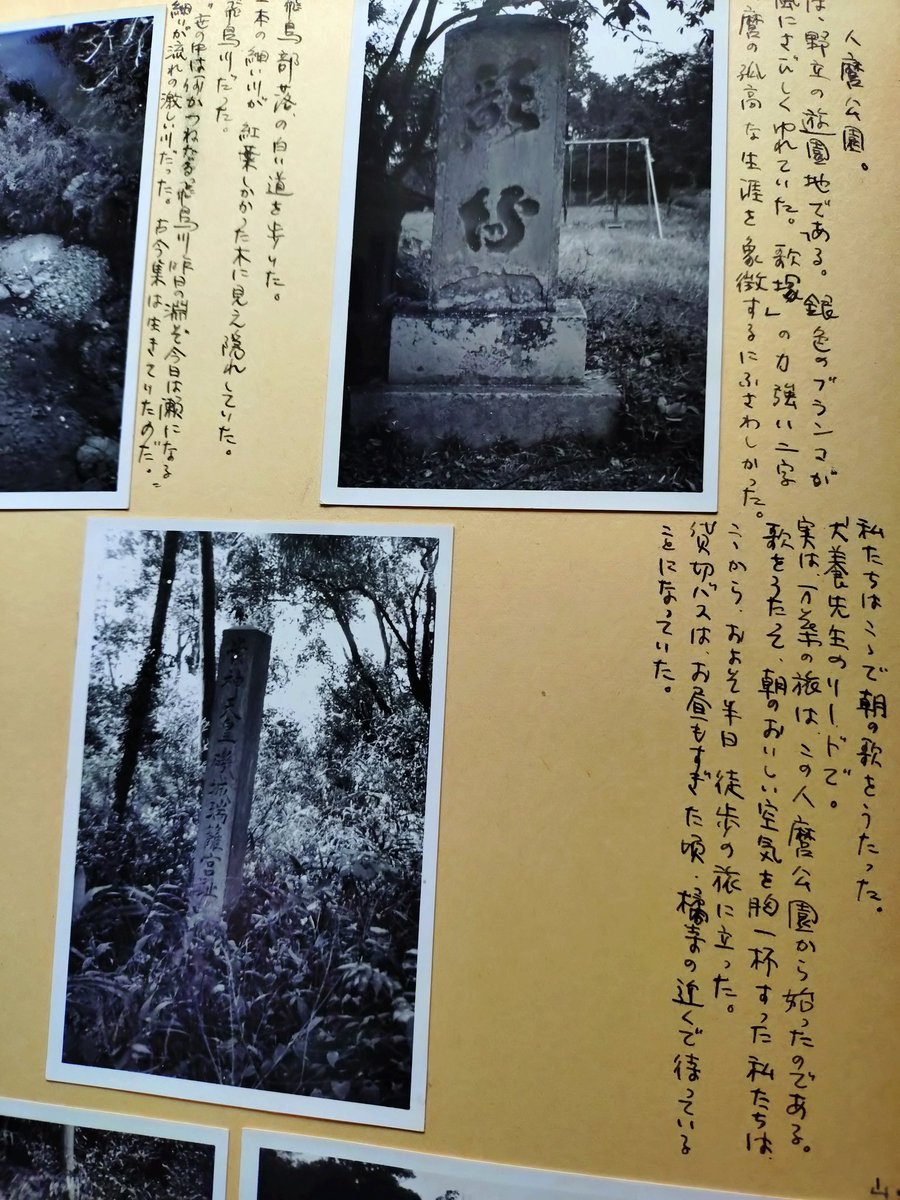 人麿公園。
は、野立の遊園地である。銀色のブランコが
風にさびしくゆれていた。「歌塚」の力強い二字
麿の孤高な生涯を象徴するにふさわしかった。
私たちはここで朝の歌をうたった。
犬養先生のリードで。
実は、万葉の旅は、この人麿公園から始ったのである。
歌をうたって、朝のおいしい空気を胸一杯すった私たちは、
ここから、およそ半日 徒歩の旅に立った。
貸切バスは、お昼もすぎた頃、橘寺の近くで待っている
ことになっていた。
歌塚
飛鳥部落の白い道を歩いた。
本の細い川が 紅葉しかかった木に見え隠れしていた。
飛鳥川だった。
"世の中は何かつねなる飛鳥川昨日の淵ぞ今日は瀬になる"
細いが流れの激しい川だった。古今集は生きていたのだ。
崇神天皇磯城瑞籬宮趾